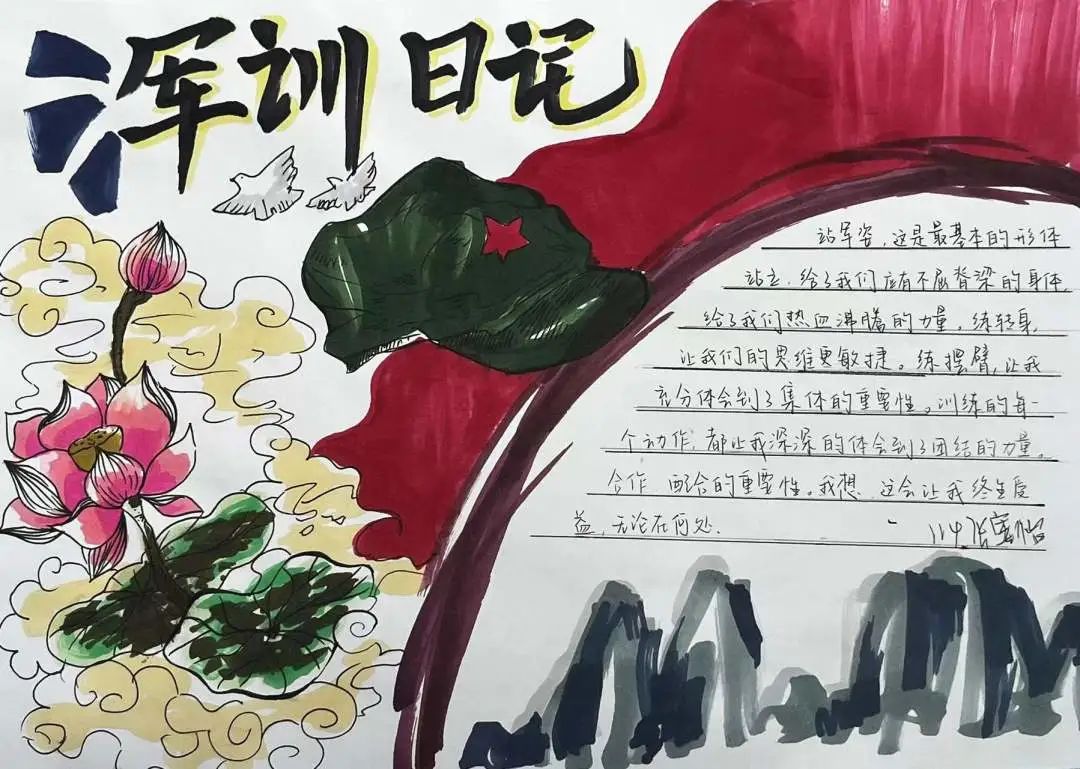 军训日记
站军姿，这是最基本的形体
站立，给了我们应有不屈脊梁的身体，
给了我们热血沸腾的力量。练转身，
让我们的思维更敏捷。练摆臂，让我
充分体会到了集体的重要性。训练的每一
个动作，都让我深深的体会到了团结的力量。
合作，配合的重要性。我想，这会让我终生受
益，无论在何处.